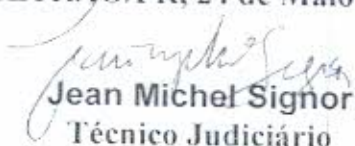 /PR, 24 de Maio
Jean Michel Signor
Técnico Judiciário